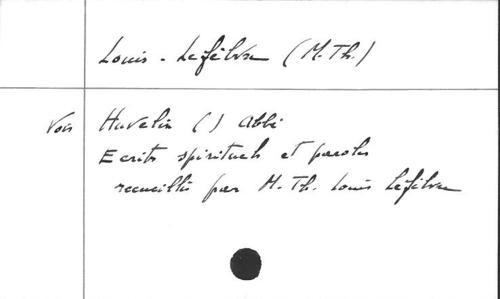 Louis-Lefèbvre (M.Th.)
Voir Huvelin () Abbé
Ecrits spirituels et paroles
recueillis par M.Th. Louis Lefèbvre